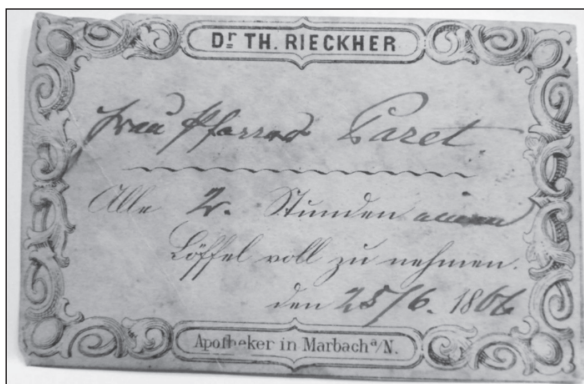 Dr TH. RIECKHER
Frau Pfarrer Paret
Alle 2. Stunden einen
Löffel voll zu nehmen.
den 25/6. 1866
Apotheker in Marbach a/N.